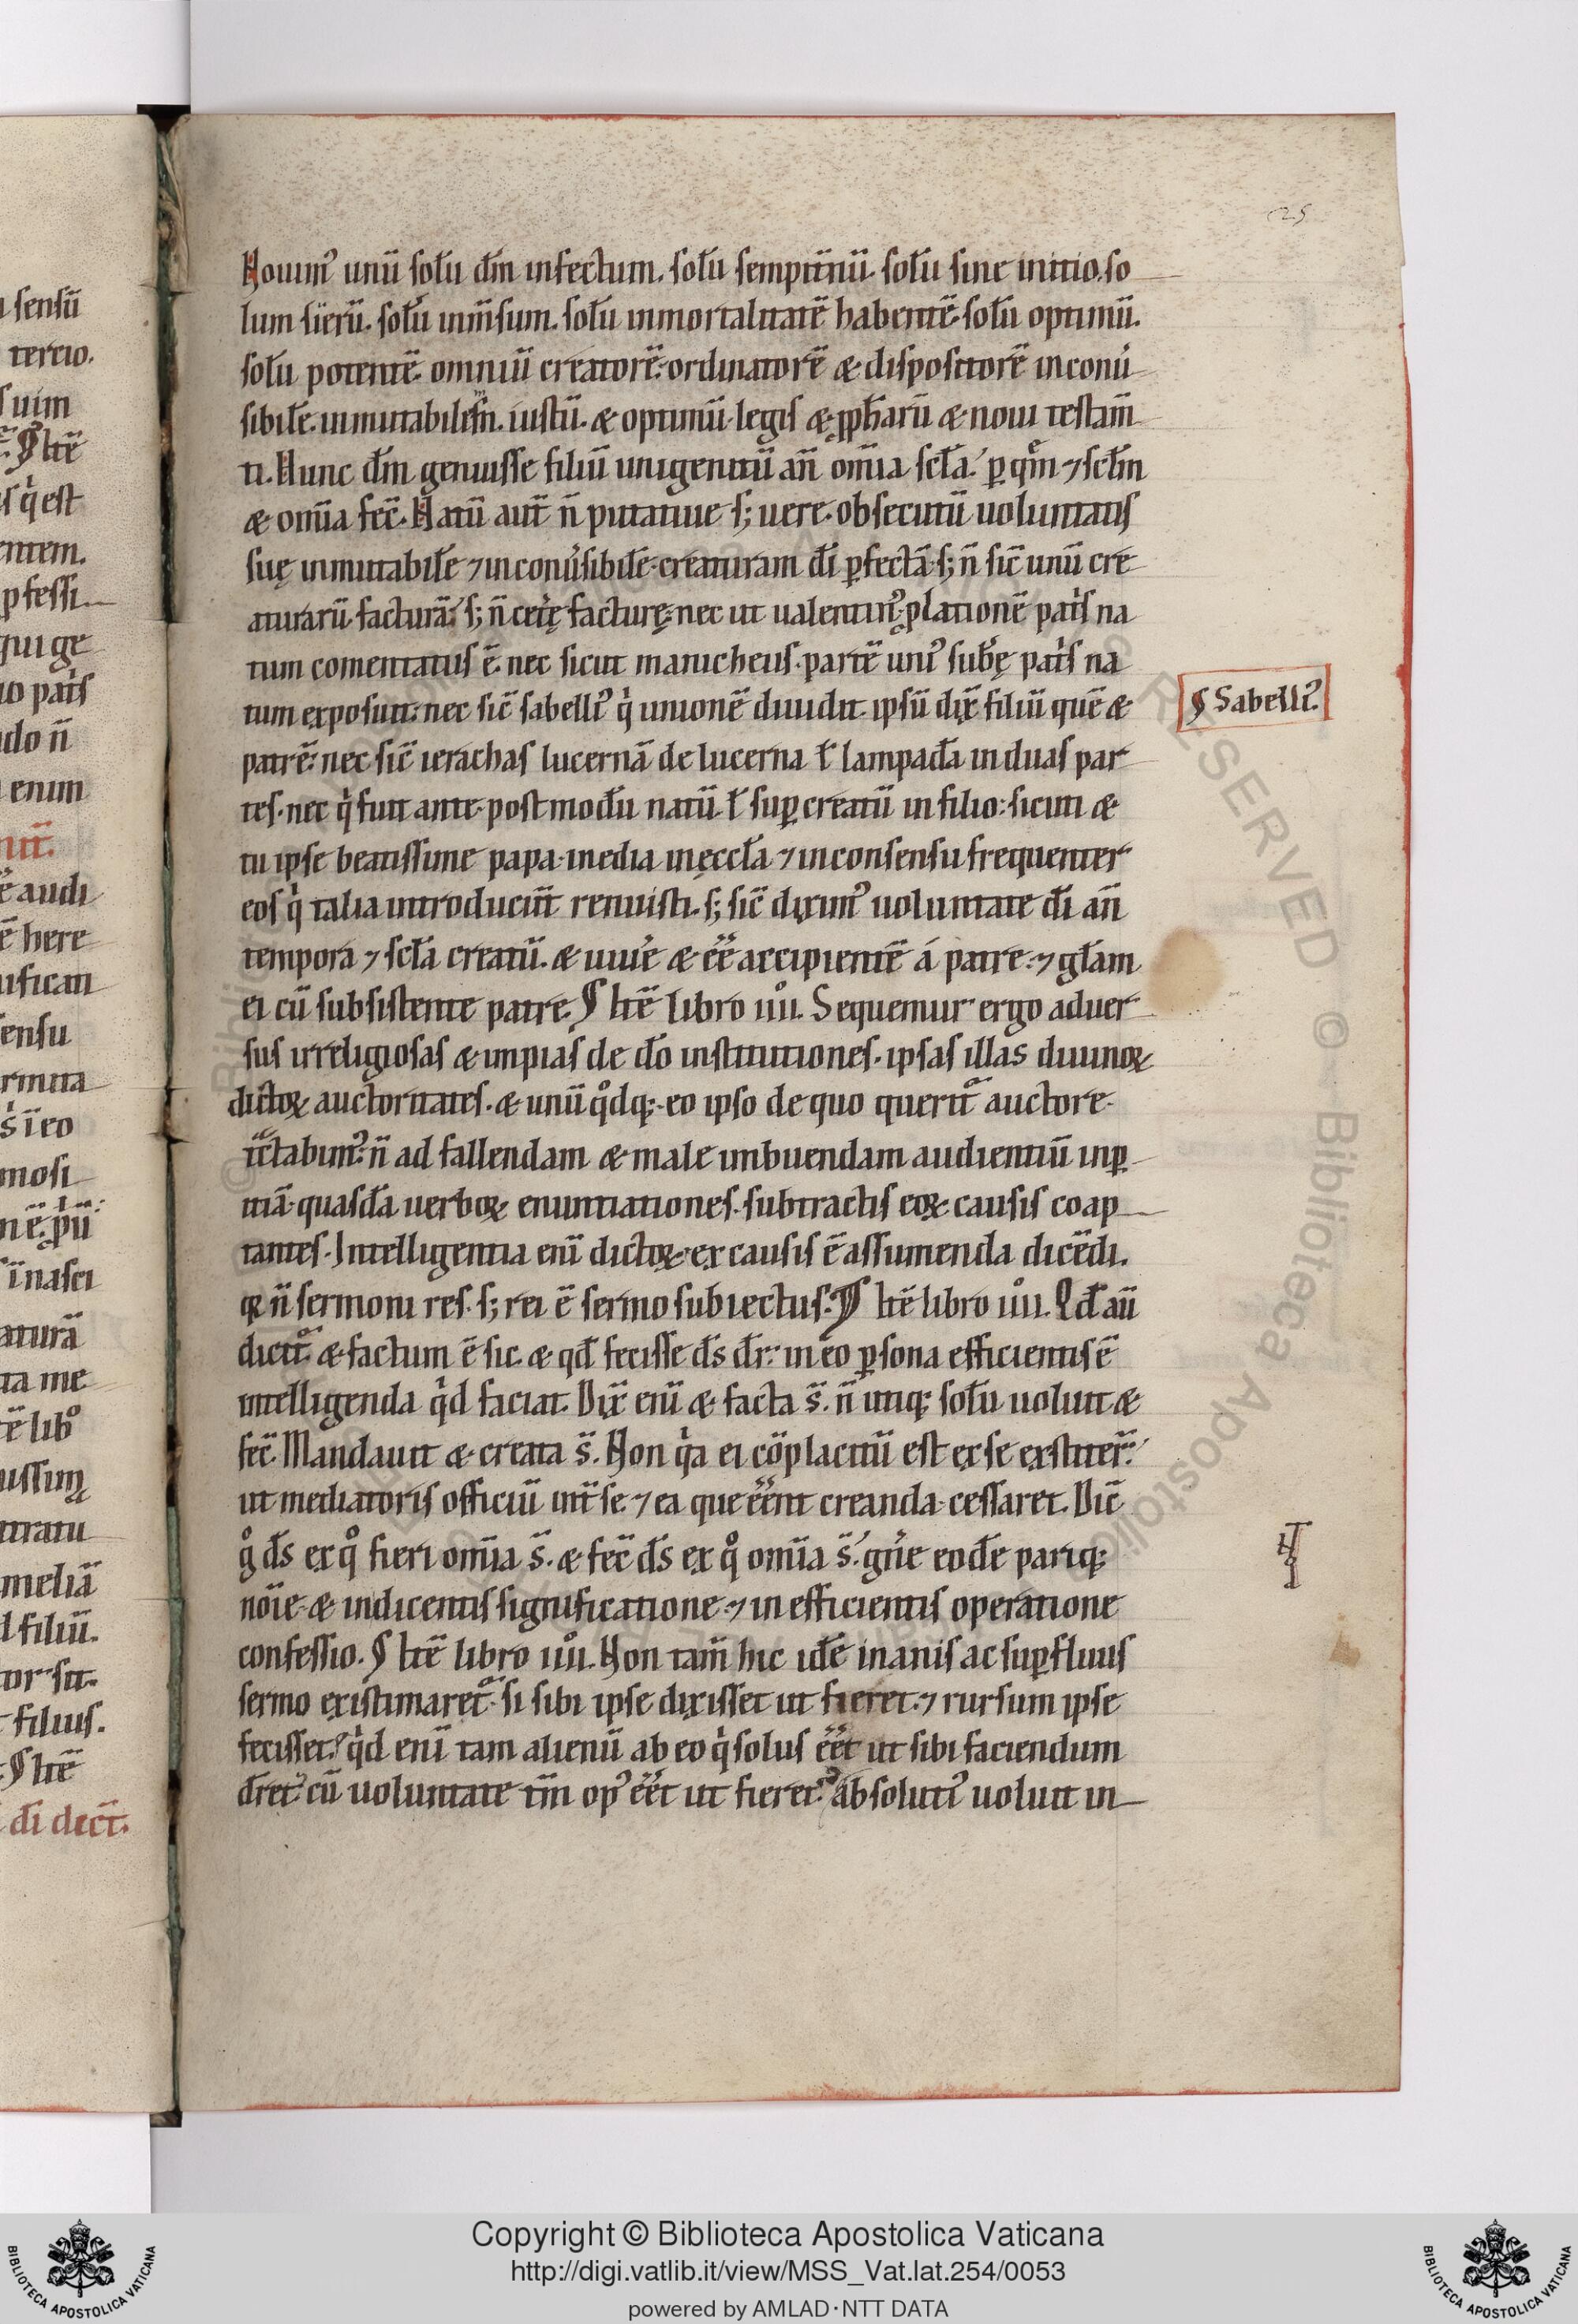 25
Nouim᾽ unū solū dm̄ infectum. solū sempit̄nū. solū sine initio. so
lum sīerū. solū inm̄sum. solū inmortalitatē habentē. solū optimū.
solū potentē. omniū creatorē. ordinatorē & dispositorē inconu̓
sibilē. inmutabilēm. iustū. & optimū. legis & pph̄arū & noui testam̄
ti. Hunc dm̄ genuisse filiū unigenitū an̄ om̄ia sc̄la. ꝑ qm̊ ⁊ sc̄lm
& om̄ia fec̄. Natū aut̄ n̄ putatiue s; uere. obsecutū uoluntatis
suę inmutabilē ⁊ inconu̓sibilē. creaturam dī ꝑfectā. s; n̄ sic̄ unū cre
aturarū. facturā. s; n̄ cet̓ę facturę. nec ut ualentin᾽. plationē pat̓s na
tum comentatus ē. nec sicut manicheus. partē uni᾽ subę pat̓s na
tum exposuit. nec sic̄ sabelli᾽ qi unionē diuidit. ipsū dix̄ filiū quē &
¶ Sabelli᾽.
patrē. nec sic̄ ierachas lucernā de lucerna ł lampadā in duas par
tes. nec qi fuit ante. postmodū natū ł suꝑcreatū in filio. sicuti &
tu ipse beatissime papa. media in ęccła ⁊ in consensu frequenter
eos qi talia introducūt renuisti. s; sic̄ dixim᾽ uoluntate dī an̄
tempora ⁊ sc̄la creatū. & uiue̓ & ēē accipientē á patre. ⁊ głam
ei cū subsistente patre. ¶ Itē libro iiiio. Sequemur ergo aduer
sus irreligiosas & impias de dō institutiones. ipsas illas diuinoꝝ
dictoꝝ auctoritates. & unū qodq;. eo ipso de quo querit᷑ auctore.
tc̄tabim᾽. n̄ ad fallendam & male imbuendam audientiū inꝑ
itiā. quasdā uerboꝝ enuntiationes. subtractis eoꝝ causis coap
tantes. Intelligentia enī dictoꝝ. ex causis ē assumenda dicēdi.
qꝛ n̄ sermoni res. s; rei ē sermo subiectus. ¶ Itē libro iiiio. Qd̄ aū
dicit᷑. & factum ē sic. & qd̄ fecisse ds̄ dr̄. in eo ꝑsona efficientis ē
intelligenda qid faciat. Dix̄ enī & facta s̄. n̄ utiq; solū uoluit &
fec̄. Mandauit & creata s̄. Non qia ei cōplacitū est ex se exstiter̄.
ut mediatoris officiū int̄ se. ⁊ ea que ēēnt creanda. cessaret. Dic̄
go ds̄ ex qo fieri om̄ia s̄. & fec̄ ds̄ ex qo om̄ia s̄. gn̓e eodē pariq;
noīe. & in dicentis significatione. ⁊ in efficientis operatione
confessio. ¶ Itē libro iiiio. Non tam̄ hic idē inanis ac suꝑfluus
sermo existimaret᷑. si sibi ipse dixisset ut fieret. ⁊ rursum ipse
fecisset. qid enī tam alienū ab eo qi solus ēēt ut sibi faciendum
dr̄et᾽. cū uoluntate tm̄ op᾽ ēēt ut fieret. absoluti᾽ uoluit in
Copyright © Biblioteca Apostolica Vaticana
http://digi.vatlib.it/view/MSS_Vat.lat.254/0053
powered by AMLAD·NTT DATA